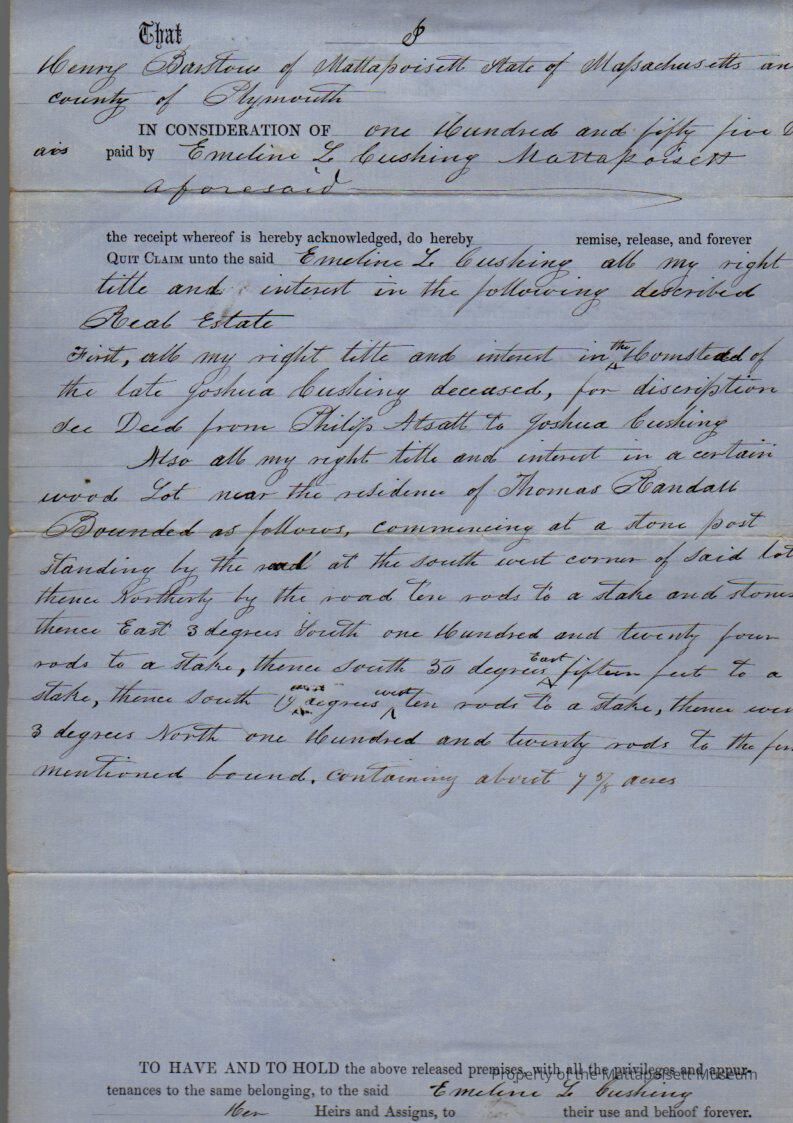 That I
Henry Barstow of Mattapoisett State of Massachusetts an
county of Plymouth
IN CONSIDERATION OF one Hundred and fifty five
paid by Emeline L Cushing Mattapoisett
aforesaid
the receipt whereof is hereby acknowledged, do hereby remise, release, and forever
QUIT CLAIM unto the said Emeline L Cushing all my right
title and interest in the following described
Real Estate
First, all my right title and interest in the Homstead of
the late Joshua Cushing deceased, for discription
see Deed from Philip Atsatt to Joshua Cushing
Also all my right title and interest in a certain
wood Lot near the residence of Thomas Randall
Bounded as follows, commencing at a stone post
standing by the road at the south west corner of said lot
thence Northerly by the road ten rods to a stake and stones
thence East 3 degrees South one Hundred and twenty four
rods to a stake, thence south 30 degrees East fifteen feet to a
stake, thence south degrees west ten rods to a stake, thence wes
3 degrees North one Hundred and twenty rods to the firs
mentioned bound, containing about 7 5/8 acres
TO HAVE AND TO HOLD the above released premises, with all the privileges and appur-
tenances to the same belonging, to the said Emeline L Cushing
Her Heirs and Assigns, to their use and behoof forever.
Property of the Mattapoisett Museum